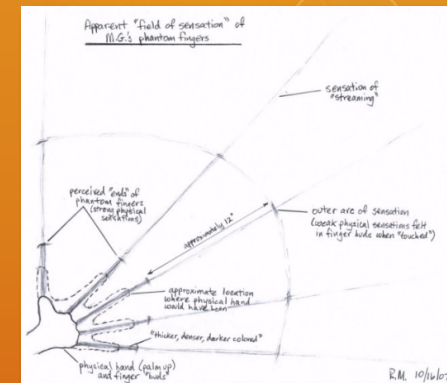 Apparent "field of sensation" of
M.G.'s phantom fingers
sensation of
"streaming"
perceived "ends" of
phantom fingers
(strong physical
sensations)
approximately 12"
outer arc of sensation
(weak physical sensations felt
in finger buds when "touched")
approximate location
where physical hand
would have been
"thicker, denser, darker colored"
physical hand (palm up)
and finger "buds"
R.M. 10/16/0